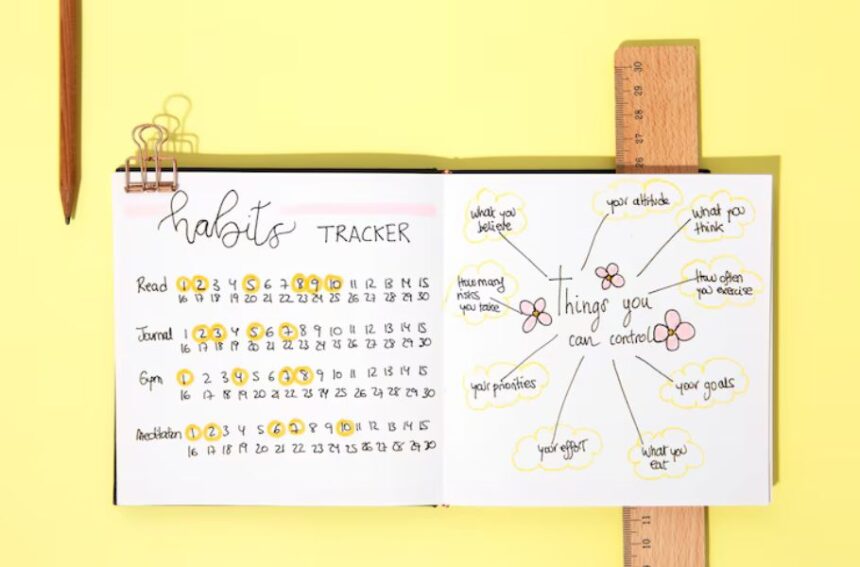 habits TRACKER
Read 1 2 3 4 5 6 7 8 9 10 11 12 13 14 15
16 17 18 19 20 21 22 23 24 25 26 27 28 29 30
Journal 1 2 3 4 5 6 7 8 9 10 11 12 13 14 15
16 17 18 19 20 21 22 23 24 25 26 27 28 29 30
Gym 1 2 3 4 5 6 7 8 9 10 11 12 13 14 15
16 19 20 21 22 23 24 25 26 27 28 29 30
Meditation 1 2 3 4 5 6 7 8 9 10 11 12 13 14 15
16 17 18 19 20 21 22 23 24 25 26 27 28 29 30
what you
believe
your attitude
What you
think
How many
risks
you take
How often
you exercise
Things you
can control
your priorities
your goals
your effort
what you
eat
30
29
28
27
26
11
10